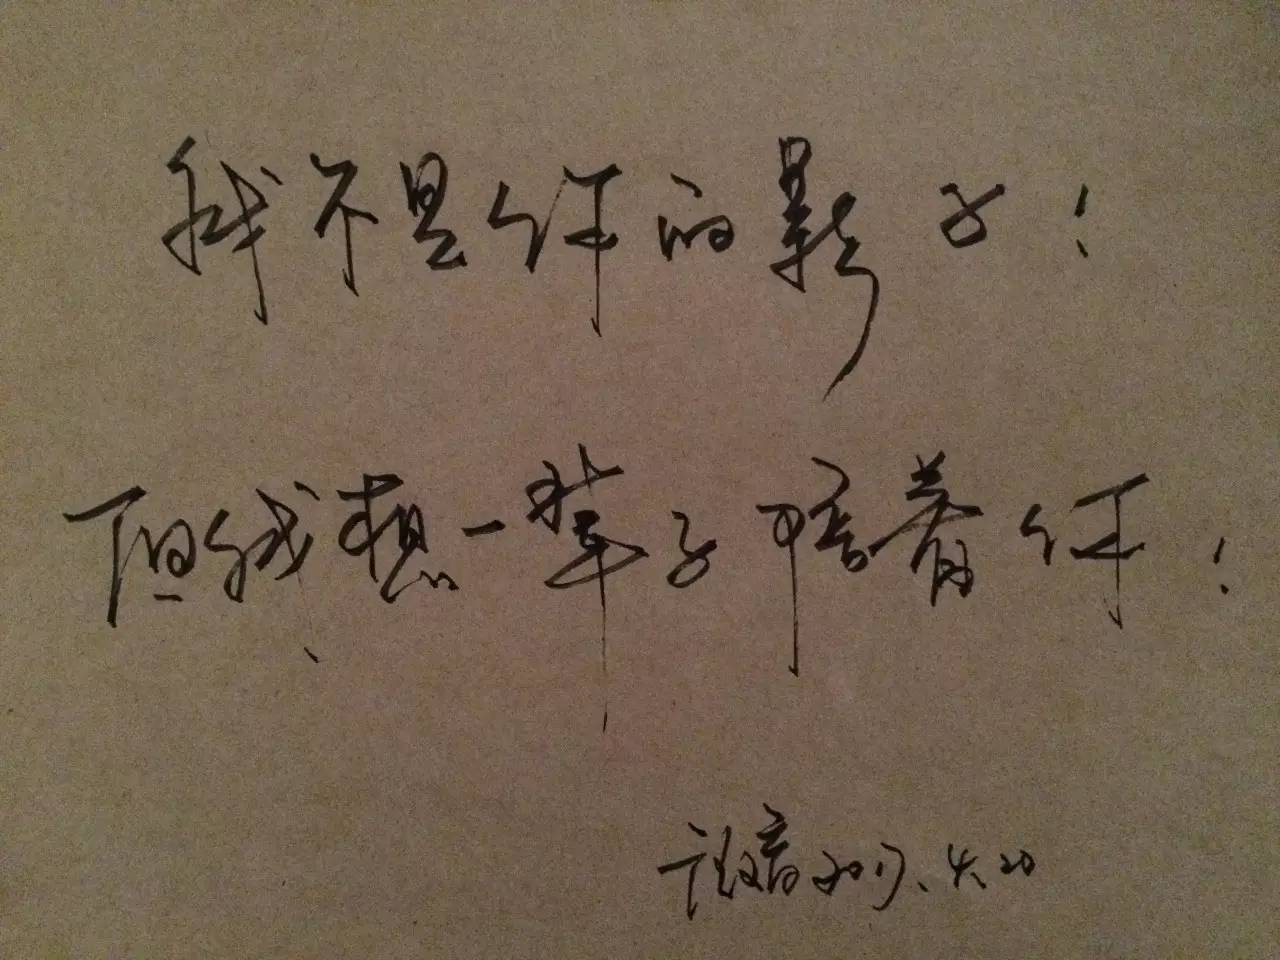 我不是你的影子！
但我想一辈子陪着你！
2017.4.20